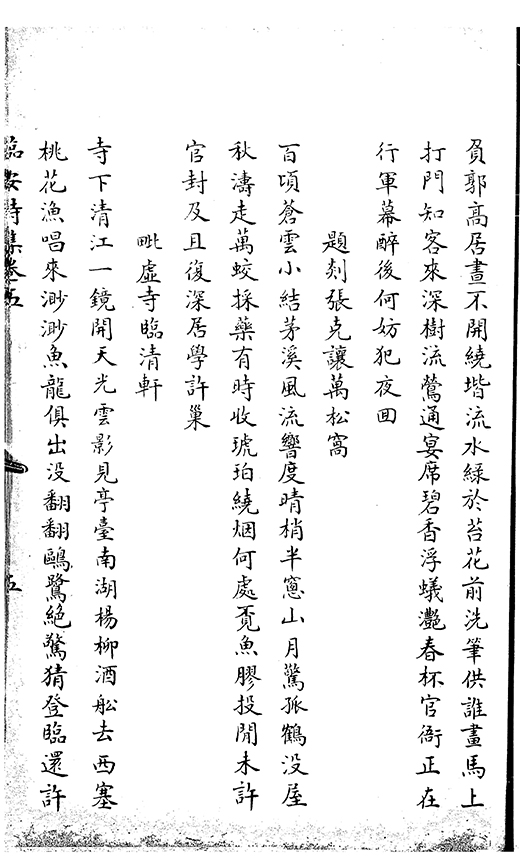 負郭髙居晝不開繞堦流水緑於苔花前洗筆供誰畫馬上
打門知客來深樹流鶯通宴席碧香浮蟻灧春杯官衙正在
行軍幕醉後何妨犯夜回
題剡張克讓萬松窩
百頃蒼雲小結茅溪風流響度晴梢半窻山月驚孤鶴没屋
秋濤走萬蛟採藥有時收琥珀繞烟何處覔魚膠投閒未許
官封及且復深居學許巢
毗盧寺臨清軒
寺下清江一鏡開天光雲影見亭臺南湖楊柳酒舩去西塞
桃花漁唱來渺渺魚龍俱出没翻翻鷗鷺絶驚猜登臨還許
臨安詩集卷五
五